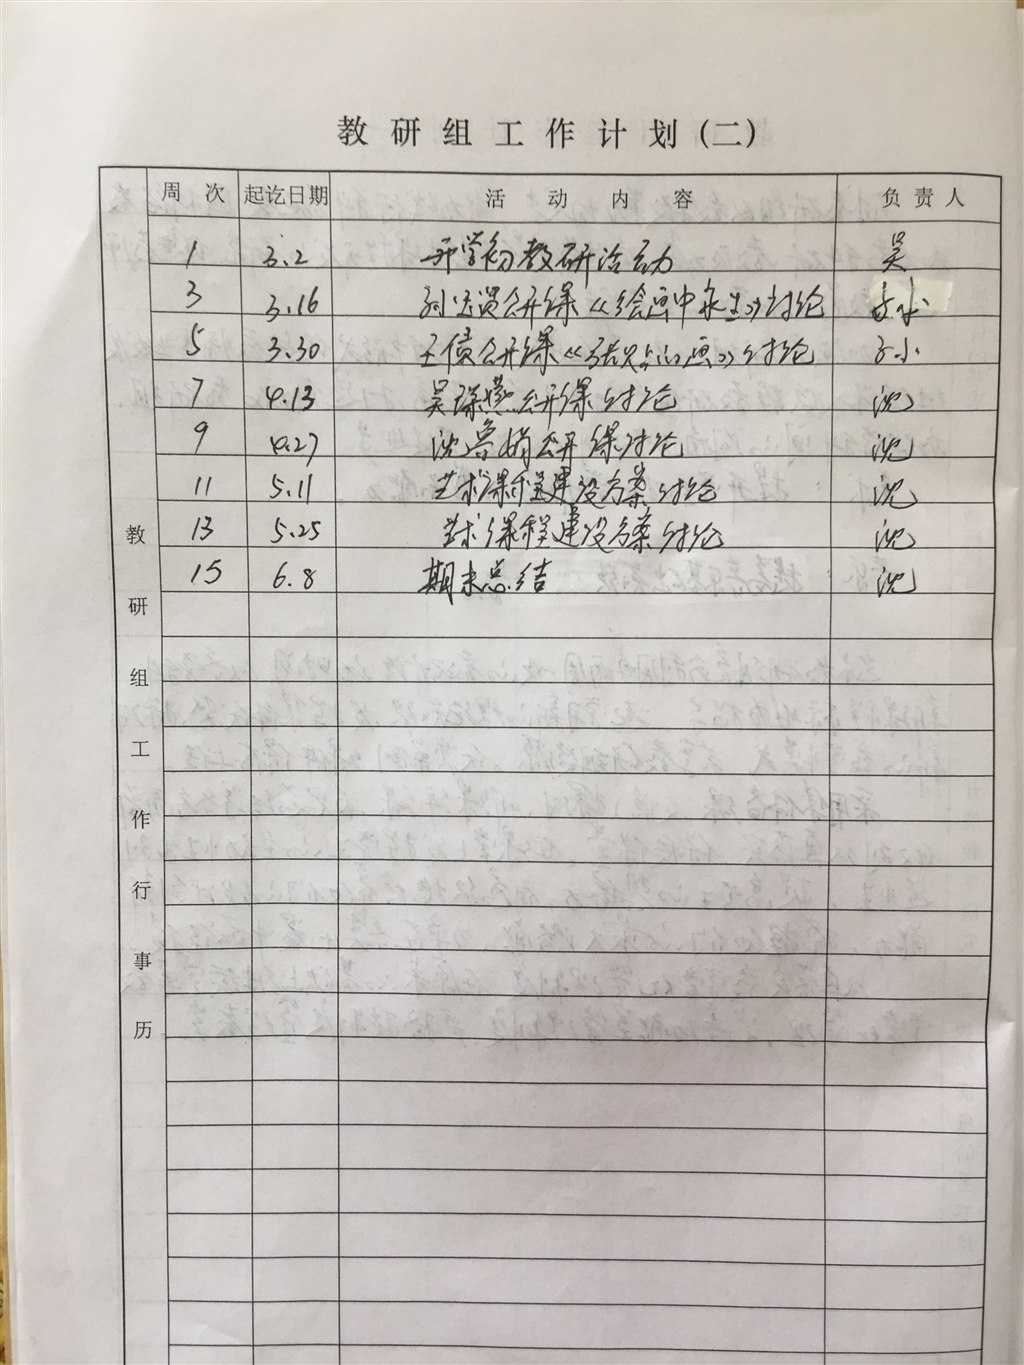 教研组工作计划(二)
周次 起讫日期 活动内容 负责人
1 3.2 开学初教研活动 吴
3 3.16 公开课《绘画中 》讨论
5 3.30 王倩公开课《 的画》讨论
7 4.13 吴 公开课讨论 沈
9 4.27 沈 娟公开课讨论 沈
11 5.11 艺术课程建设方案讨论 沈
13 5.25 艺术课程建设方案讨论 沈
15 6.8 期末总结 沈
教研组工作行事历